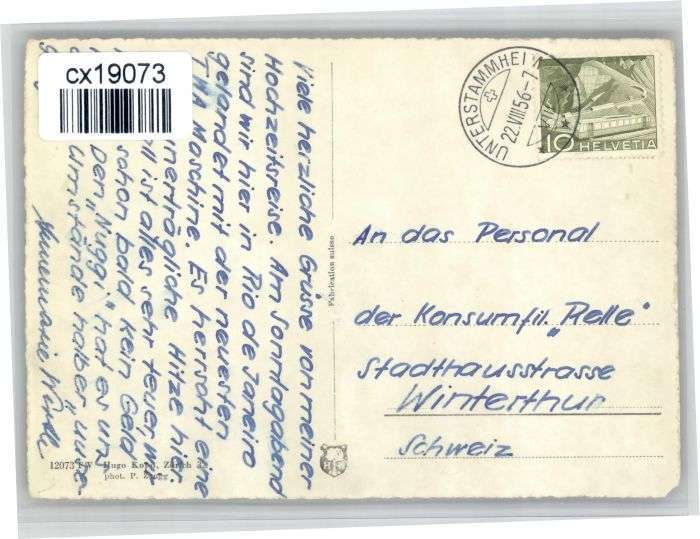 cx19073
Viele herzliche Grüsse von meiner
Hochzeitsreise. Am Sonntagabend
sind wir hier in Rio de Janeiro
gelandet mit der neuesten
TWA Maschine. Es herrscht eine
unerträgliche Hitze hier.
ist alles sehr teuer,
schon bald kein Geld
Den „Nuggi" hat es un.
Umstände halber
Annemarie
Fabrication suisse
12073 FW Hugo Kopp, Zürich
phot. P. Zaugg
UNTERSTAMMHEIM
22.VIII.56-7
10 HELVETIA
An das Personal
der Konsumfil. „Relle"
Stadthausstrasse
Winterthur
Schweiz
H K